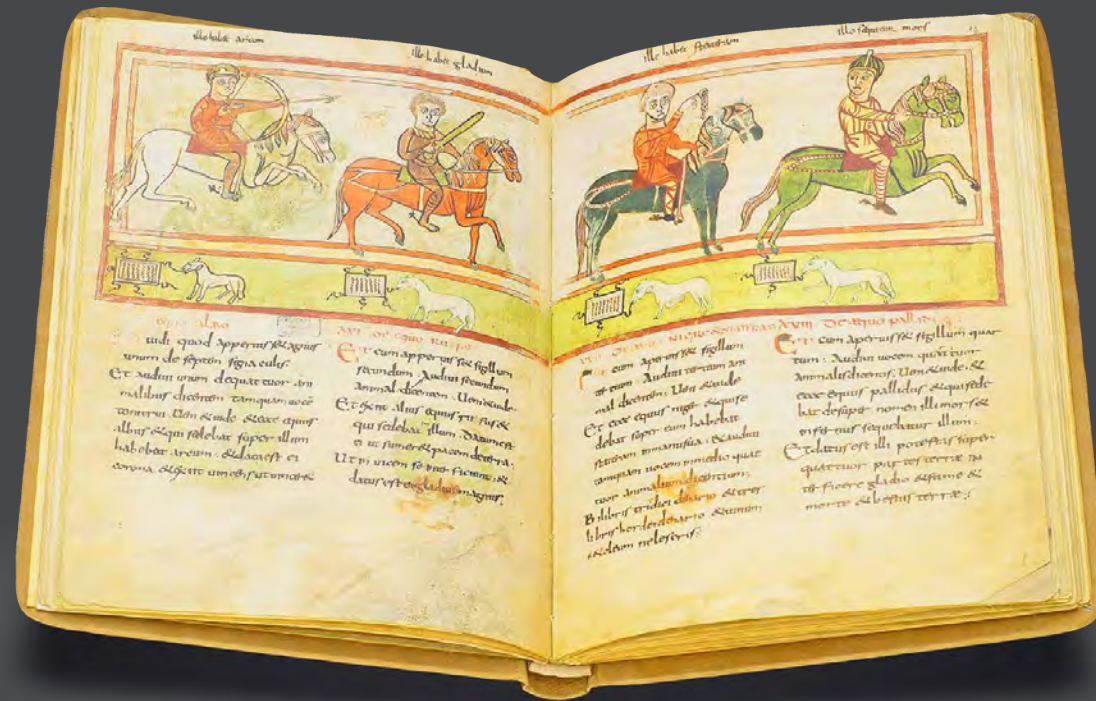 ille habet arcum
ille habet gladium
ille habet stateram
illo sequitur mors
albo
uidi quod apperuisset agnus
unum de septem sigillis
Et audiui unum de quattuor ani
malibus dicentem tamquam uoce
Ueni & uide & ecce equus
albus & qui sedebat super illum
habebat arcum & data est ei
corona & exiuit
XVI DE EQUO RUFO
Et cum apperuisset sigillum
secundum Audiui secundum
animal dicentem Ueni & uide
Et exiuit alius equus rufus &
qui sedebat illum Datum est
ei ut sumeret pacem de terra
Ut inuicem se interficiant &
datus est ei gladius magnus
DE EQUO NIGRO
Et cum aperuisset sigillum
tertium Audiui tertium ani
mal dicentem Ueni & uide
Et ecce equus niger & qui se
debat super eum habebat
stateram in manu sua & audiui
tamquam uocem in medio quat
tuor animalium dicentium
Bilibris tritici denario & tres
libris hordei denario & uinum
& oleum ne leseris
XVIII DE EQUO PALLIDO
Et cum aperuisset sigillum quar
tum Audiui uocem quattuor
animalis dicentis Ueni & uide &
ecce equus pallidus & qui sede
bat desuper nomen illi mors &
infernus sequebatur illum
Et datus est illi potestas super
quattuor partes terrae in
terficere gladio & fame &
morte & bestiis terrae